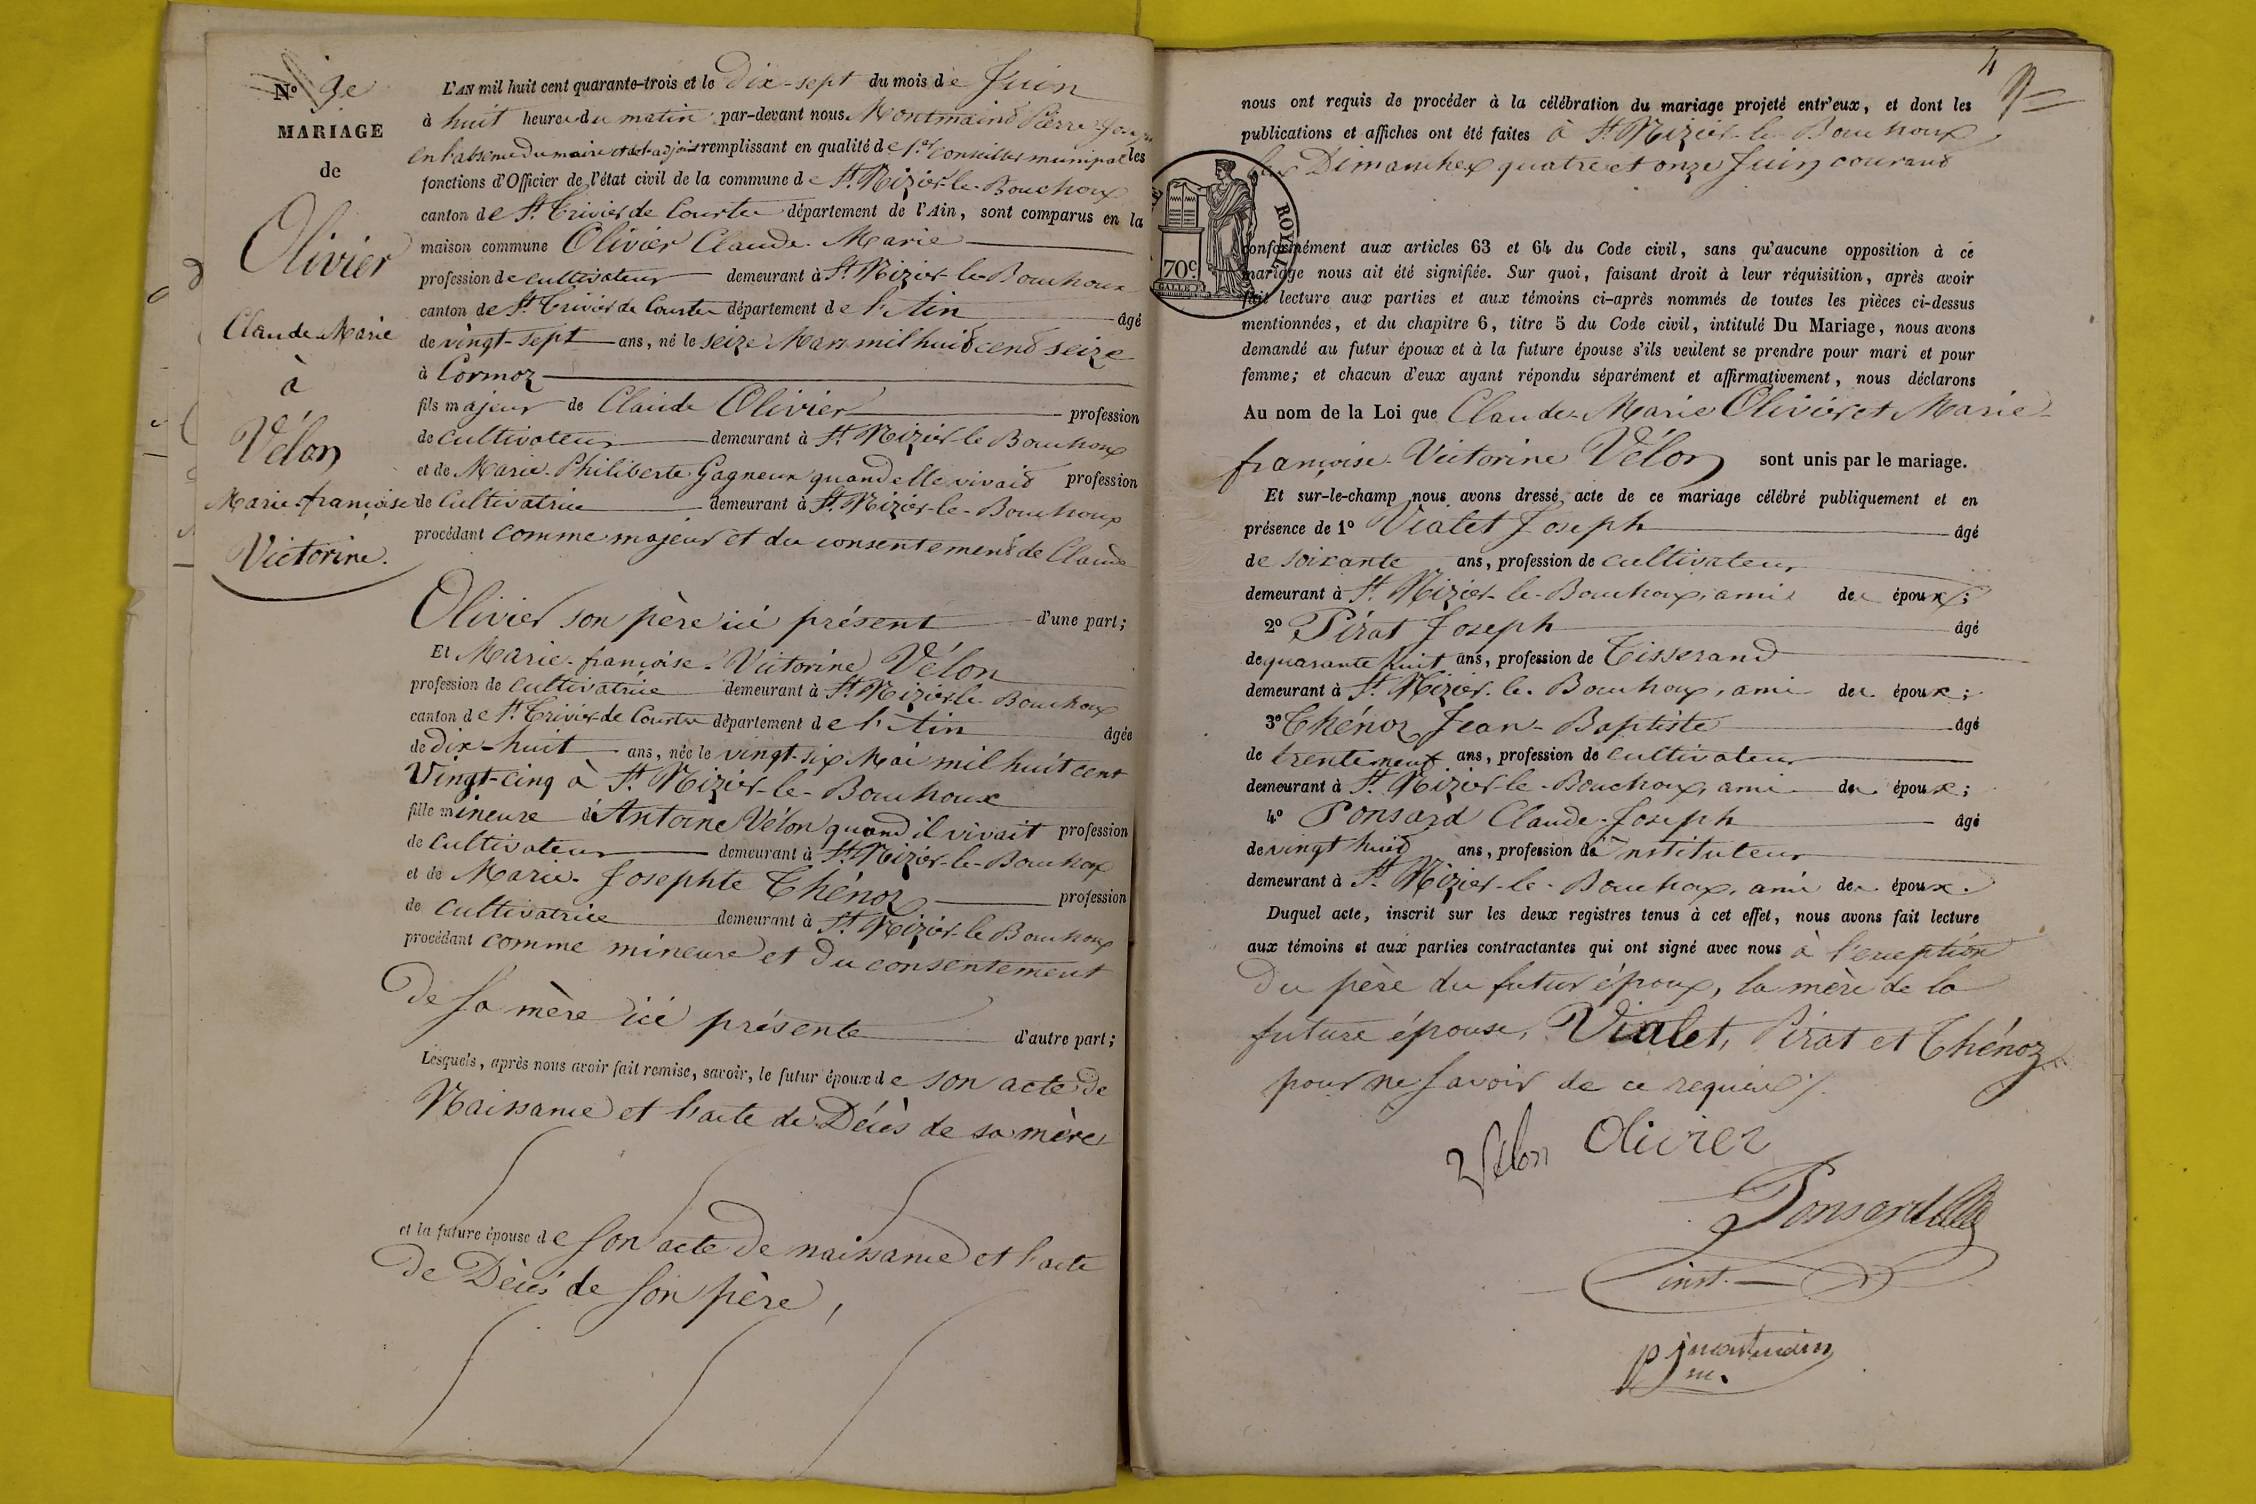 N° 9e
MARIAGE
de
Olivier
Claude-Marie
à
Vélon
Marie-françoise
Victorine.
L'AN mil huit cent quarante-trois et le Dix-sept du mois de Juin
à huit heures du matin par-devant nous Montmaind Pierre Joseph
en l'absence du maire et de l'adjoint remplissant en qualité de 1er Conseiller municipal les
fonctions d'Officier de l'état civil de la commune de St. Nizier-le-Bouchoux
canton de St. Trivier de Courtes département de l'Ain, sont comparus en la
maison commune Olivier Claude-Marie
profession de cultivateur demeurant à St. Nizier-le-Bouchoux
canton de St. Trivier de Courtes département de l'Ain âgé
de vingt-sept ans, né le seize Mars mil huit cent seize
à Cormoz
fils majeur de Claude Olivier profession
de cultivateur demeurant à St. Nizier-le-Bouchoux
et de Marie-Philiberte Gagneux quand elle vivait profession
de cultivatrice demeurant à St. Nizier-le-Bouchoux
procédant comme majeur et du consentement de Claude
Olivier son père ici présent d'une part;
Et Marie-françoise-Victorine Vélon
profession de cultivatrice demeurant à St. Nizier-le-Bouchoux
canton de St. Trivier-de-Courtes département de l'Ain âgée
de Dix-huit ans, née le vingt-six Mai mil huit cent
Vingt-cinq à St. Nizier-le-Bouchoux
fille mineure d'Antoine Vélon quand il vivait profession
de cultivateur demeurant à St. Nizier-le-Bouchoux
et de Marie-Josephte Thénoz profession
de cultivatrice demeurant à St. Nizier-le-Bouchoux
procédant comme mineure et du consentement
de sa mère ici présente d'autre part;
Lesquels, après nous avoir fait remise, savoir, le futur époux de son acte de
Naissance et l'acte de Décès de sa mère
et la future épouse de son acte de naissance et l'acte
de Décès de son père,
4
nous ont requis de procéder à la célébration du mariage projeté entr'eux, et dont les
publications et affiches ont été faites à St. Nizier-le-Bouchoux
les Dimanches quatre et onze Juin courant
ROYAL
70c
conformément aux articles 63 et 64 du Code civil, sans qu'aucune opposition à ce
mariage nous ait été signifiée. Sur quoi, faisant droit à leur réquisition, après avoir
fait lecture aux parties et aux témoins ci-après nommés de toutes les pièces ci-dessus
mentionnées, et du chapitre 6, titre 5 du Code civil, intitulé Du Mariage, nous avons
demandé au futur époux et à la future épouse s'ils veulent se prendre pour mari et pour
femme; et chacun d'eux ayant répondu séparément et affirmativement, nous déclarons
Au nom de la Loi que Claude-Marie Olivier et Marie-
françoise-Victorine Vélon sont unis par le mariage.
Et sur-le-champ nous avons dressé acte de ce mariage célébré publiquement et en
présence de 1° Vialet Joseph âgé
de soixante ans, profession de cultivateur
demeurant à St. Nizier-le-Bouchoux, ami des époux;
2° Pirat Joseph âgé
de quarante huit ans, profession de Tisserand
demeurant à St. Nizier-le-Bouchoux, ami des époux;
3° Thénoz Jean-Baptiste âgé
de trente neuf ans, profession de cultivateur
demeurant à St. Nizier-le-Bouchoux, ami des époux;
4° Ponsard Claude-Joseph âgé
de vingt huit ans, profession d'instituteur
demeurant à St. Nizier-le-Bouchoux, ami des époux.
Duquel acte, inscrit sur les deux registres tenus à cet effet, nous avons fait lecture
aux témoins et aux parties contractantes qui ont signé avec nous à l'exception
du père du futur époux, la mère de la
future épouse, Vialet, Pirat et Thénoz
pour ne savoir de ce requis.
Vélon Olivier
Ponsard
inst.